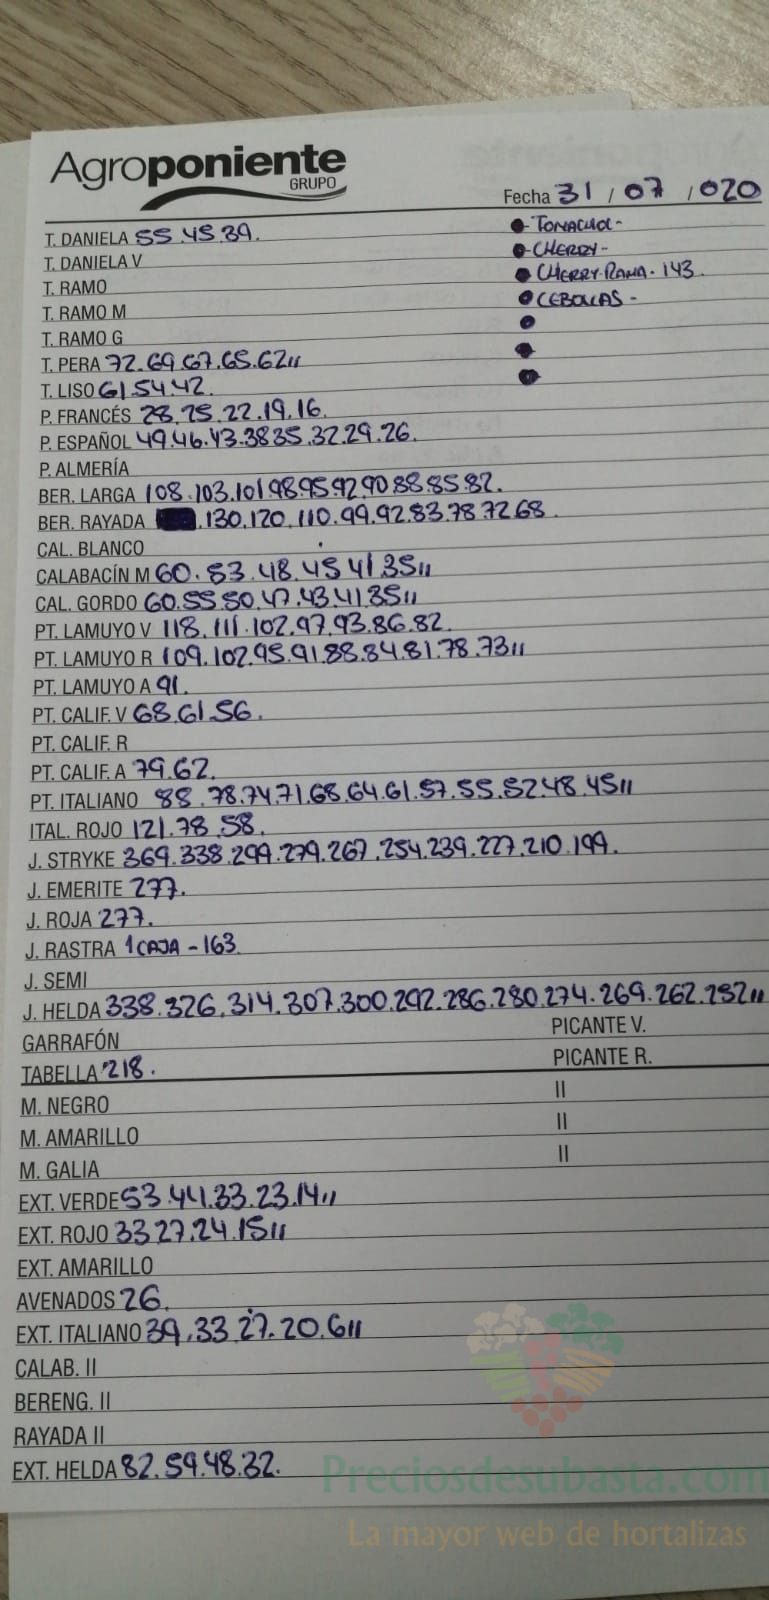 Agroponiente
GRUPO
Fecha 31 / 07 / 020
T. DANIELA 55.45.39.
T. DANIELA V
T. RAMO
T. RAMO M
T. RAMO G
T. PERA 72.69.67.65.62,,
T. LISO 61.54.42.
P. FRANCÉS 28.25.22.19.16.
P. ESPAÑOL 49.46.43.38.35.32.29.26.
P. ALMERÍA
BER. LARGA 108.103.101.98.95.92.90.88.85.82.
BER. RAYADA .130.120.110.99.92.83.78.72.68.
CAL. BLANCO
CALABACÍN M 60.53.48.45.41.35,,
CAL. GORDO 60.55.50.47.43.41.35,,
PT. LAMUYO V 118.111.102.97.93.86.82.
PT. LAMUYO R 109.102.95.91.88.84.81.78.73,,
PT. LAMUYO A 91.
PT. CALIF. V 68.61.56.
PT. CALIF. R
PT. CALIF. A 79.62.
PT. ITALIANO 88.78.74.71.68.64.61.57.55.52.48.45,,
ITAL. ROJO 121.78.58.
J. STRYKE 369.338.299.279.267.254.239.227.210.199.
J. EMERITE 277.
J. ROJA 277.
J. RASTRA 1 CAJA - 163.
J. SEMI
J. HELDA 338.326.314.307.300.292.286.280.274.269.262.252,,
GARRAFÓN
TABELLA 218.
M. NEGRO
M. AMARILLO
M. GALIA
EXT. VERDE 53.44.33.23.14,,
EXT. ROJO 33.27.24.15,,
EXT. AMARILLO
AVENADOS 26.
EXT. ITALIANO 39.33.27.20.6,,
CALAB. II
BERENG. II
RAYADA II
EXT. HELDA 82.59.48.32.
- CHERRY -
- CHERRY RAMA - 143.
CEBOLLAS -
PICANTE V.
PICANTE R.
II
II
II
Preciosdesubasta.com
La mayor web de hortalizas